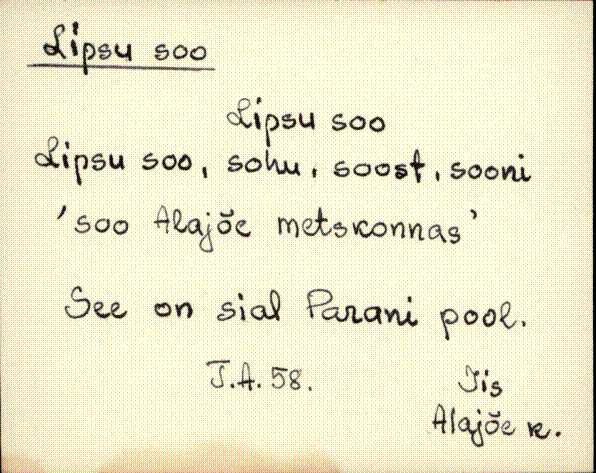 Lipsu soo
Lipsu soo
Lipsu soo, sohu, soost, sooni
'soo Alajõe metskonnas'
See on sial Parani pool.
J.A. 58.
Iis
Alajõe k.